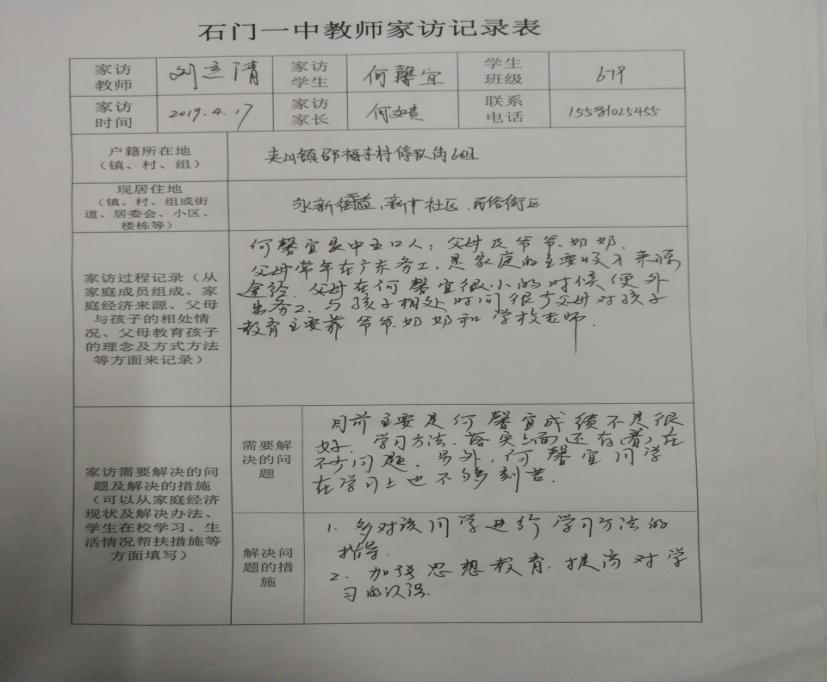 石门一中教师家访记录表
家访教师 刘立清 家访学生 何馨宜 学生班级 679
家访时间 2019.4.17 家访家长 联系电话 15581025455
户籍所在地
（镇、村、组）
夹山镇
现居住地
（镇、村、组或街
道、居委会、小区、
楼栋等）
永新街道、新中社区、民俗街区
家访过程记录（从
家庭成员组成、家
庭经济来源、父母
与孩子的相处情
况、父母教育孩子
的理念及方式方法
等方面来记录）
何馨宜家中五口人：父母及爷爷、奶奶.
父母常年在广东务工，是家庭的主要收入来源
途径.父母在何馨宜很小的时候便外
出务工.与孩子相处时间很少父母对孩子
教育主要靠爷爷奶奶和学校老师.
家访需要解决的问
题及解决的措施
（可以从家庭经济
现状及解决办法、
学生在校学习、生
活情况帮扶措施等
方面填写）
需要解
决的问
题
目前主要是何馨宜成绩不是很
好.学习方法.落实方面还存在
不少问题.另外，何馨宜同学
在学习上也不够刻苦.
解决问
题的措
施
1.多对该同学进行学习方法的
指导.
2.加强思想教育.提高对学
习的认识.